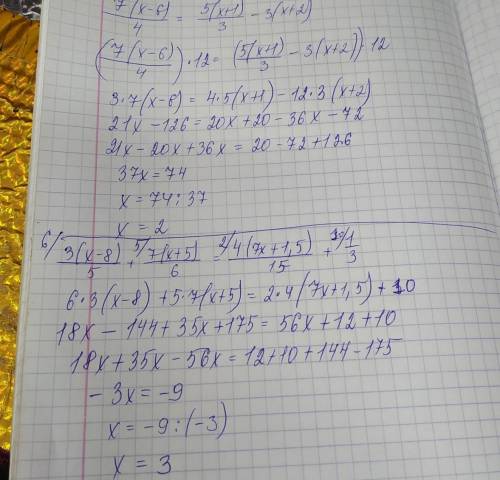 7(x-6)/4 = 5(x+1)/3 - 3(x+2)
(7(x-6)/4)·12 = (5(x+1)/3 - 3(x+2))·12
3·7(x-6) = 4·5(x+1) - 12·3(x+2)
21x - 126 = 20x + 20 - 36x - 72
21x - 20x + 36x = 20 - 72 + 126
37x = 74
x = 74 : 37
x = 2
6/ 3(x-8)/5 + 5/ 7(x+5)/6 2/ 4(7x+1,5)/15 + 10/ 1/3
6·3(x-8) + 5·7(x+5) = 2·4(7x+1,5) + 10
18x - 144 + 35x + 175 = 56x + 12 + 10
18x + 35x - 56x = 12 + 10 + 144 - 175
- 3x = -9
x = -9 : (-3)
x = 3